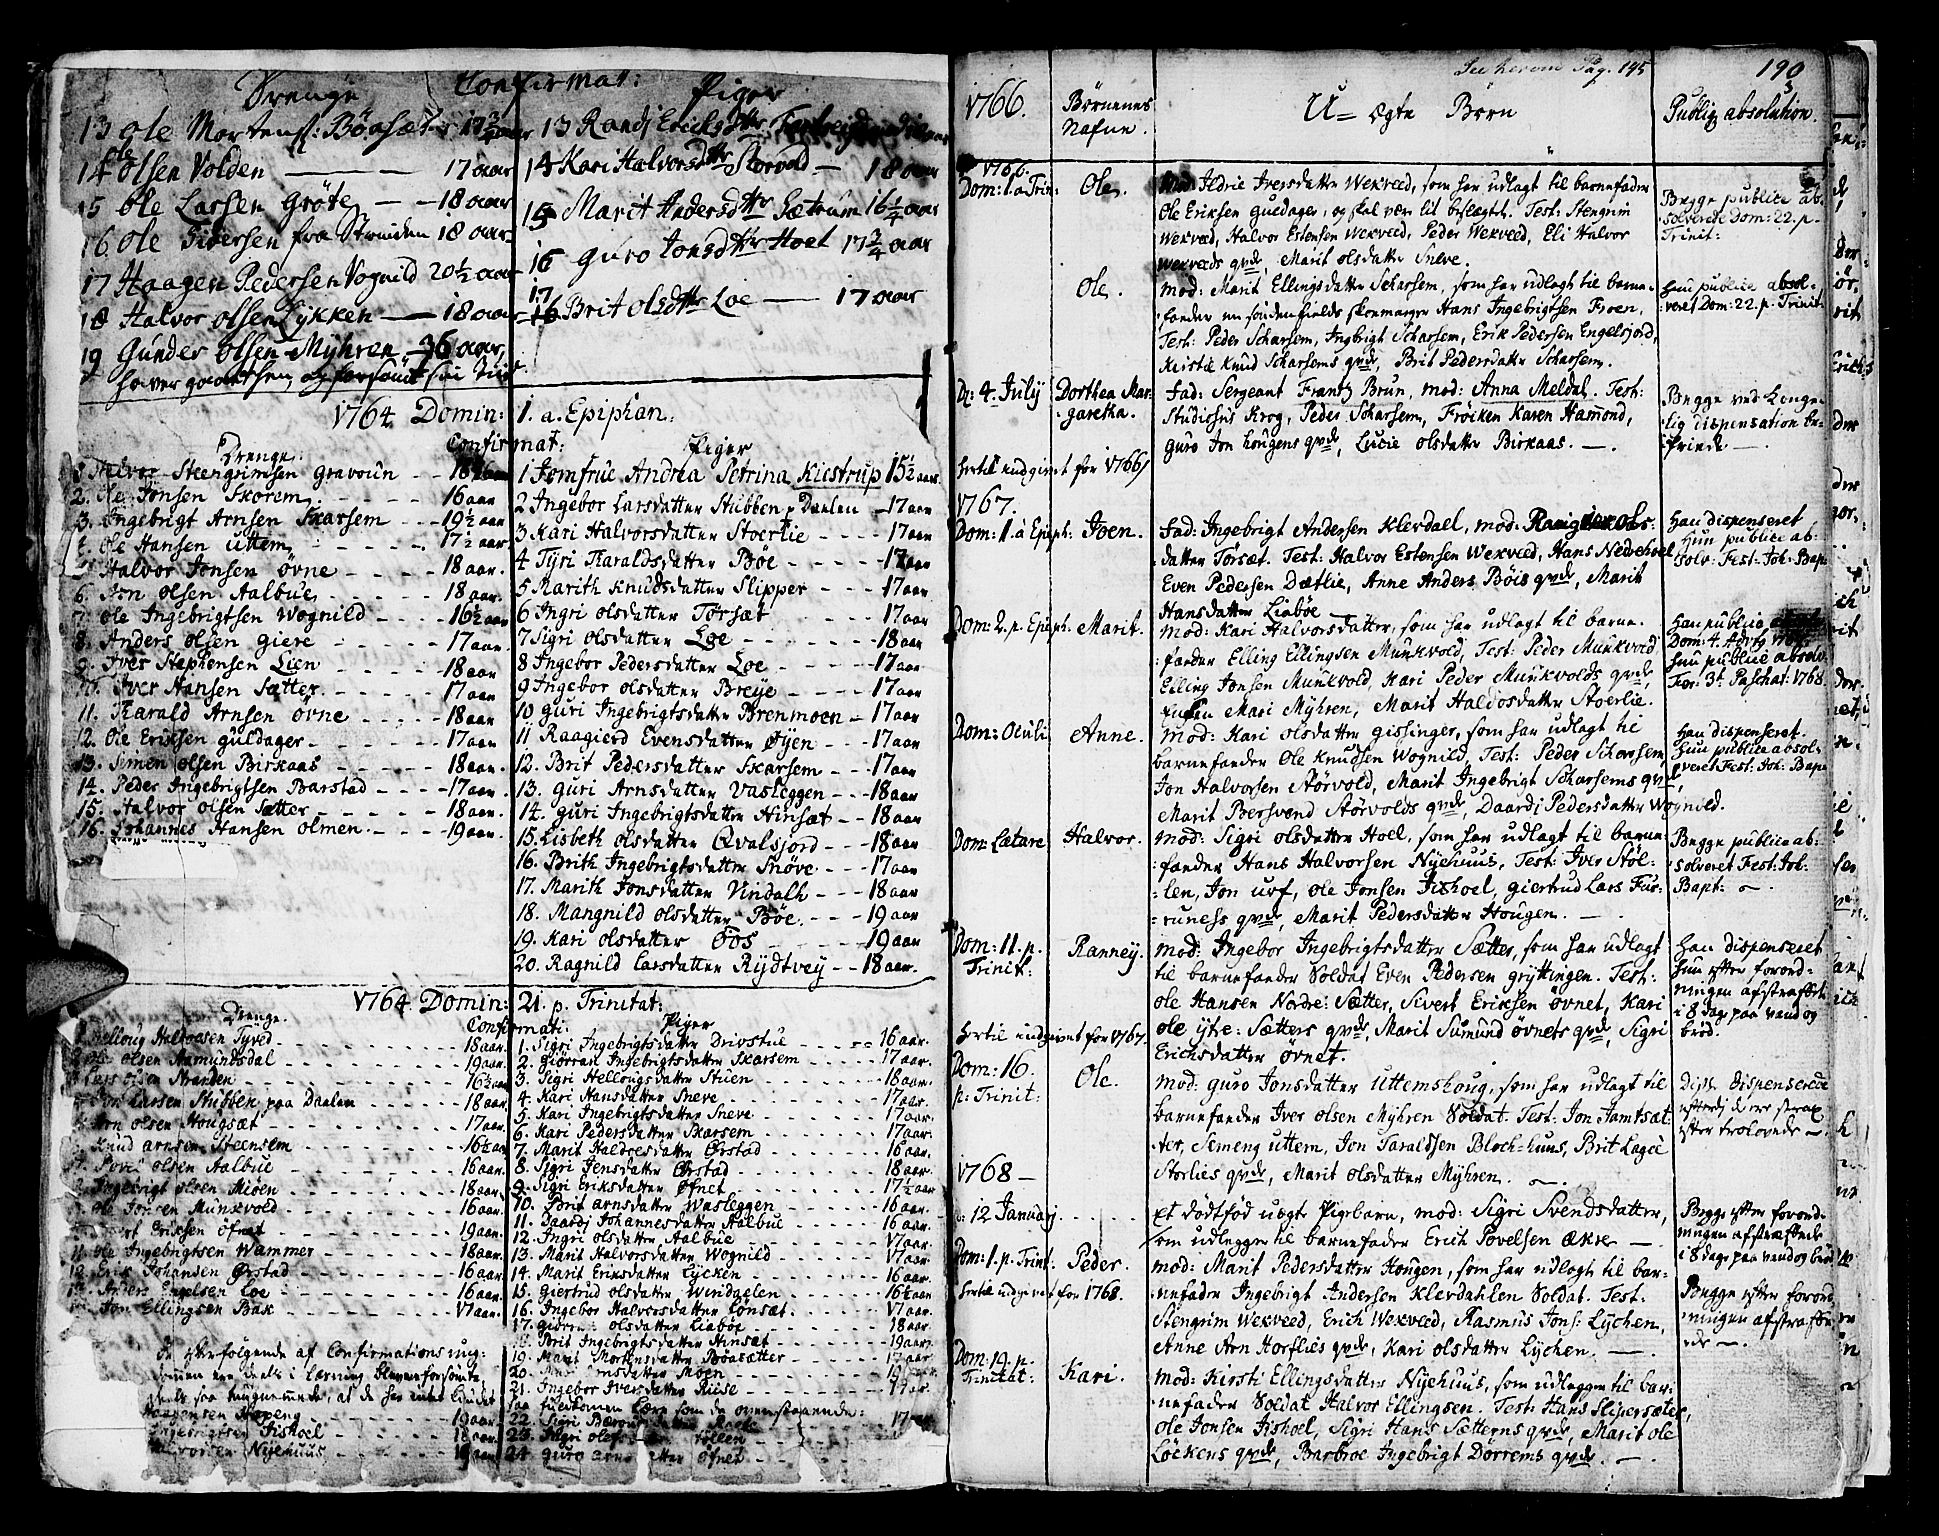 Confirmat:
Drenge
Piger
13 Ole Mortens: Böasæter 17 3/4 aar
14 Ole Olsen Volden 17 aar
15 Ole Larsen Gröte 18 aar
16 Ole Siversen fra Stranden 18 aar
17 Haagen Pedersen Vognild 20 1/2 aar
18 Halvor Olsen Lykken 18 aar
19 Gunder Olsen Myhren 36 aar,
13 Randi Ericksdttr
14 Kari Halvorsdttr Storvold 18 aar
15 Marit Andersdttr Sætrum 16 1/4 aar
16 Guro Jonsdttr Hoel 17 3/4 aar
17 Brit Olsdttr Loe 17 aar
1764 Domin: 1. a. Epiphan:
Confirmat:
Drenge.
Halvor Steengrimsen Gravoün
2. Ole Jonsen Skorem. 16 aar
3. Ingebrigt Arnsen Skarsem 19 1/2 aar
4. Ole Hansen Uttem 17 1/2 aar
Halvor Jonsen Övne 18 aar.
6. Jon Olsen Aalbue 18 aar.
7. Ole Ingebrigtsen Wognild 16 1/2 aar
8. Anders Olsen Giere 17 aar.
9. Iver Stephensen Lien 18 aar.
10. Iver Hansen Sætter. 17 aar
11. Harald Arnsen Övne 18 aar
12. Ole Eriksen Guldager 17 aar
13. Semen Olsen Birkaas 18 aar.
14. Peder Ingebrigtsen Barstad 17 aar.
15. Halvor Olsen Sætter 18 aar.
16. Johannes Hansen Olmen. 19 aar.
Piger
1 Jomfrue Andrea Petrina Kiestrup 15 1/2 aar.
2 Ingebor Larsdatter Stubben p Daalen 17 aar
3 Kari Halvorsdatter Stoerlie 17 aar
4 Tyri Haraldsdatter Böe 17 aar
5 Marith Knudsdatter Slipper 17 aar
6 Ingri Olsdatter Torsæt 17 aar
7 Sigri Olsdatter Loe 18 aar
8 Ingebor Pedersdatter Loe 17 aar
9 Ingebor Olsdatter Breye 17 aar
10 Guri Ingebrigtsdatter Brenmoen 17 aar
11 Raagierd Evensdatter Öyen 17 aar
12. Brit Pedersdatter Skarsem 17 aar
13. Guri Arnsdatter Vasleggen 18 aar
14. Guri Ingebrigtsdatter Hinsæt 18 aar
15. Lisbeth Olsdatter Qvalsjord 18 aar
16. Brith Ingebrigtsdatter Snöve 17 aar
17. Marith Jonsdatter Vindalh 18 aar
18. Mangnild Olsdatter Böe. 19 aar
19. Kari Olsdatter Öos 19 aar
20. Ragnild Larsdatter Rydtvey 18 aar.
1764 Domin: 21. p. Trinitat:
Confirmati:
Drenge.
Helloug Halvorsen Tyved 18 aar.
Ole Olsen Aamundsdal 19 aar.
Lars Olsen Stranden 16 1/2 aar
Larsen Stubben paa Daalen 18 aar.
Arn Olsen Hougsæt 17 aar.
Knud Arnsen Steensem 16 1/2 aar
Povel Olsen Aalbue 16 aar.
Ingebrigt Olsen Mioen 18 aar.
Ole Jonsen Munkvold 16 aar.
Eriksen Öfnet 19 aar.
11. Ole Ingebrigtsen Wammer 18 aar.
12. Erik Johansen Örstad 16 aar.
Anders Engelsen Loe 16 aar.
Jon Ellingsen Bak 17 aar.
Piger
1. Sigri Ingebrigtsdatter Drivstue 16 aar.
2. Giörran Ingebrigtsdatter Skarsem 17 aar.
3. Sigri Hellougsdatter Stuen 18 aar.
4. Kari Hansdatter Sneve 17 aar.
5. Kari Ingebrigtsdatter Sneve 17 aar.
6. Kari Pedersdatter Skarsem 17 aar.
7. Marit Haldorsdatter Örstad 16 aar.
8. Sigri Jensdatter Örstad 18 aar.
9. Sigri Eriksdatter Öfnet 17 1/2 aar
10. Brit Arnsdatter Wasleggen 16 aar.
11. Daardi Johannesdatter Aalbue 16 aar.
12. Ingri Olsdatter Aalbue 17 aar.
13. Marit Halvorsdatter Wognild 17 aar.
14. Marit Eriksdatter Lycken 16 aar.
15. Giertrud Olsdatter Windaelen 16 1/2 aar
16. Ingebor Halvorsdatter Lönsæt. 17 aar.
17. Olsdatter Liaböe 18 aar.
18. Brit Ingebrigtsdatter Hinsæt 19 aar.
19. Marit Mortensdatter Böasætter 17 aar
20. Moen
21. Ingebor Iversdatter Riise
De efterfölgende af Confirmations ung-
dommen ere deels i Lærning bleven forsömte
deels saa tungnemmede, at de har intet kundet
saa fuldkommen lære som de ovenstaaende:
19 aar
Fishoel 18 aar.
Nyehuus 19 aar.
22. Sigri
23. Ingri
24. Guro Öfnet
See herom Pag. 195
190
1766. Börnenes Nafne. U=ægte Börn Publiq absolution.
1766.
Dom: 1. a Trin: Ole. Mod: Ildrie Iversdatter Wekveed, som har udlagt til barnefader
Ole Eriksen Guldager, og skal være lit beslægtet. Test: Stengrim
Wekveed, Halvor Estensen Wekveed, Peder Wekveed, Eli Halvor
Wekveeds qvde, Marit Olsdatter Sneve.
Begge publice ab-
solverede Dom: 22. p.
Trinit:
Ole. Mod: Marit Ellingsdatter Scharsem, som har udlagt til barne-
fader en söndenfields skomager Hans Ingebrigtsen Froen.
Test: Peder Scharsem, Ingbrigt Scharsem, Erik Pedersen Engelsjord,
Kirstie Knud Scharsems qvde, Brit Pedersdatter Scharsem.
Hun publice absol-
veret Dom: 22. p. Trinit:
D: 4. July Dorthea Mar-
garetha. Fad: Sergeant Frantz Brun, mod: Anna Meldal. Test:
Studiosus Krog, Peder Scharsem, Fröiken Karen Hamond,
Guro Jon Hougens qvde, Lucie Olsdatter Birkaas.
Begge ved Konge-
lig dispensation be-
friede
hertil indgivet for 1766
1767.
Dom: 1. a Epiph: Joen. Fad: Ingebrigt Andersen Klevdall, mod: Ols-
datter Törsæt. Test: Halvor Estensen Wekveed, Hans Nedrehoel
Even Pedersen Dæflie, Anne Anders Böis qvde, Marit
Hansdatter Liaböe
Han dispenseret
Hun publice ab-
solv: Fest: Joh: Bap:
Dom: 2. p. Epiph: Marit. Mod: Kari Halvorsdatter, som har udlagt til barne-
fader Elling Ellingsen Munkvold, Test: Peder Munkvold
Elling Jonsen Munkvold, Kari Peder Munkvolds qvde,
Mari Myhren, Marit Haldosdatter Stoerlie.
Han publice
Dom: 4. Adv:
Hun publice absolv:
Fer: 3t. Paschat: 1768.
Dom: Oculi Anne. Mod: Kari Olsdatter Gissinger, som har udlagt til
barnefader Ole Knudsen Wognild, Test: Peder Scharsem
Jon Halvorsen Störvold, Marit Ingebrigt Scharsems qvde,
Marit Bersvend Störvolds qvde, Daardi Pedersdatter Wognild.
Han dispenseret.
Hun publice absol-
veret Fest: Joh: Bap:
Dom: Lætare Halvor. Mod: Sigri Olsdatter Hoel, som har udlagt til barne-
fader Hans Halvorsen Nyehuus, Test: Iver Stöl-
len, Jon Urf, Ole Jonsen Fishoel, Giertrud Lars Fur-
runess qvde, Marit Pedersdatter Hougen.
Begge publice ab-
solveret Fest: Joh:
Bapt:
Dom: 11. p.
Trinit: Ranney. Mod: Ingebor Ingebrigtsdatter Sætter, som har udlagt
til barnefader Soldat Even Pedersen Gryttingen. Test:
Ole Hansen Nordre: Sætter, Sivert Eriksen Övnet, Kari
Ole Ytre: Sætters qvde, Marit Sumund Övnets qvde, Sigri
Erichsdatter Övnet.
Han dispenseret
Hun efter forord-
ningen afstraffet
i 8 dage paa vand og
bröd.
hertil indgivet for 1767.
Dom: 16.
p: Trinit: Ole. Mod: Guro Jonsdatter Uttemshoug, som har udlagt til
barnefader Iver Olsen Myhren Soldat. Test: Jon Jamtsæt-
ter, Semeng Uttem, Jon Taraldsen Bloch-huus, Brit Lagei
Storlies qvde, Marit Olsdatter Myhren.
Disse dispenserede
efterdj de ere strax
efter trolovede
1768
12 Januarj Et dödföd uægte Pigebarn, mod: Sigri Svendsdatter,
som udlegger til barnefader Erich Povelsen Ækre
Begge efter forord-
ningen afstraffede
i 8 dage paa vand og bröd
Dom: 1. p. Trinit: Peder. Mod: Marit Pedersdatter Hougen, som har udlagt til bar-
nefader Ingebrigt Andersen Klevdahlen Soldat. Test:
Stengrim Wekveed, Erich Wekveed, Rasmus Jons: Lychen,
Anne Arn Horflies qvde, Kari Olsdatter Lychen.
Begge efter forord-
ningen afstraffe-
de
hertil indgivet for 1768.
Dom: 19. p.
Trinitat: Kari. Mod: Kirsti Ellingsdatter Nyehuus, som udlegger til bar-
nefader Soldat Halvor Ellingsen. Test: Hans Slipersæter,
Ole Jonsen Fishoel, Sigri Hans Sætterns qvde, Marit Ole
Löckens qvde, Barbroe Ingebrigt Dörrems qvde.